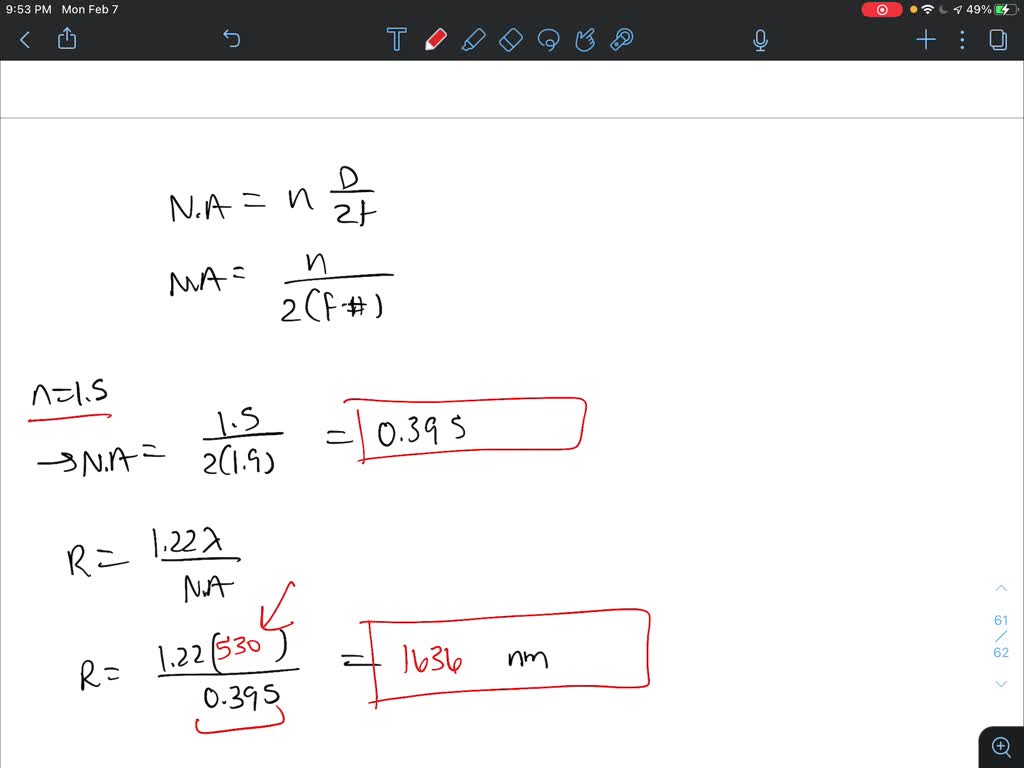 9:53 PM Mon Feb 7 49%
T
N.A = n D/2f
NA = n/2(f-#)
n=1.5
→ N.A = 1.5/2(1.9) = 0.395
R = 1.22λ/N.A
R = 1.22(530)/0.395 = 1636 nm
61
/
62